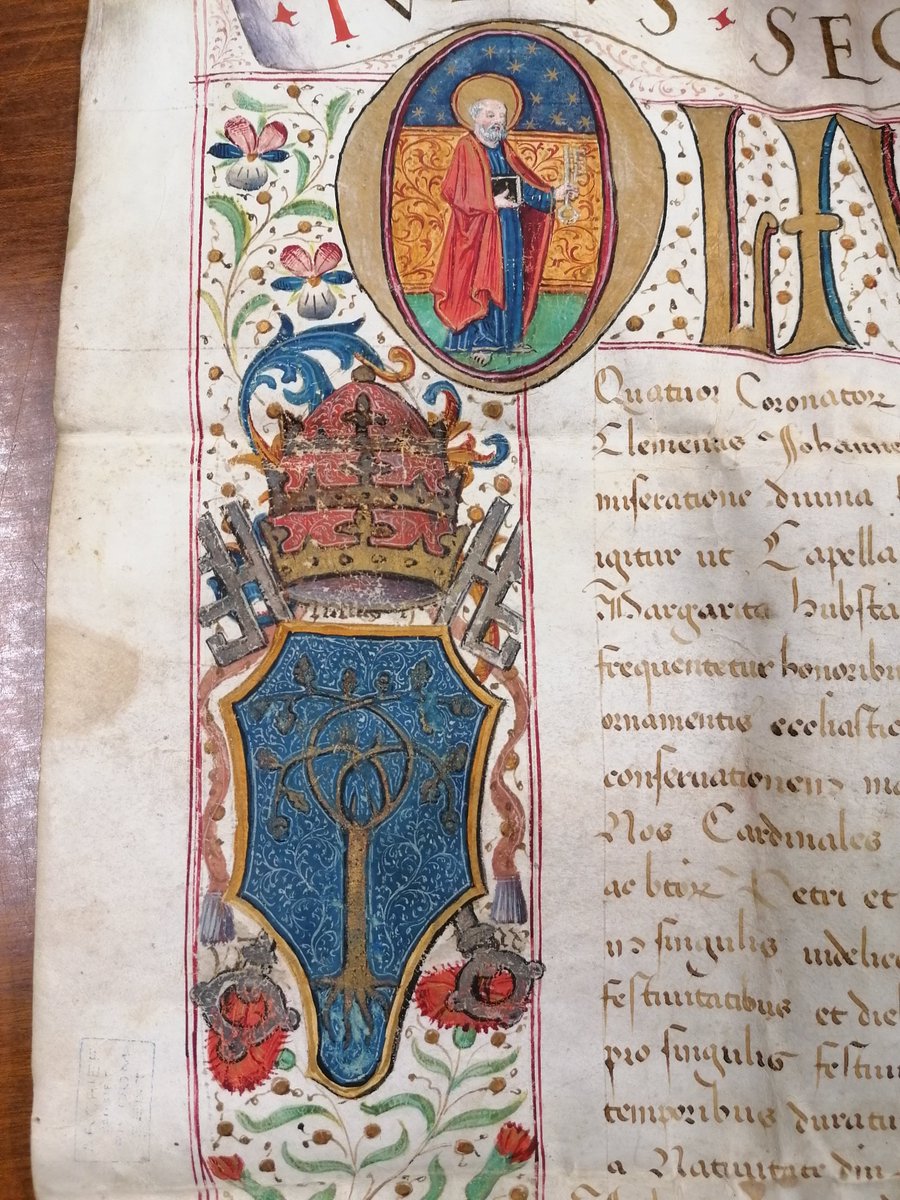 SEC
OLIV
Quatuor Coronator
Clementis Johanne
miseratione diuina
igitur ut Capella
Margarita hubsta
frequentetur honoribu
ornamentis eccliastic
conseruationem ma
Nos Cardinales
ac btor Petri et
in singulis uidelic
festiuitatibus et die
pro singulis festiui
temporibus duratu
a Natiuitate din